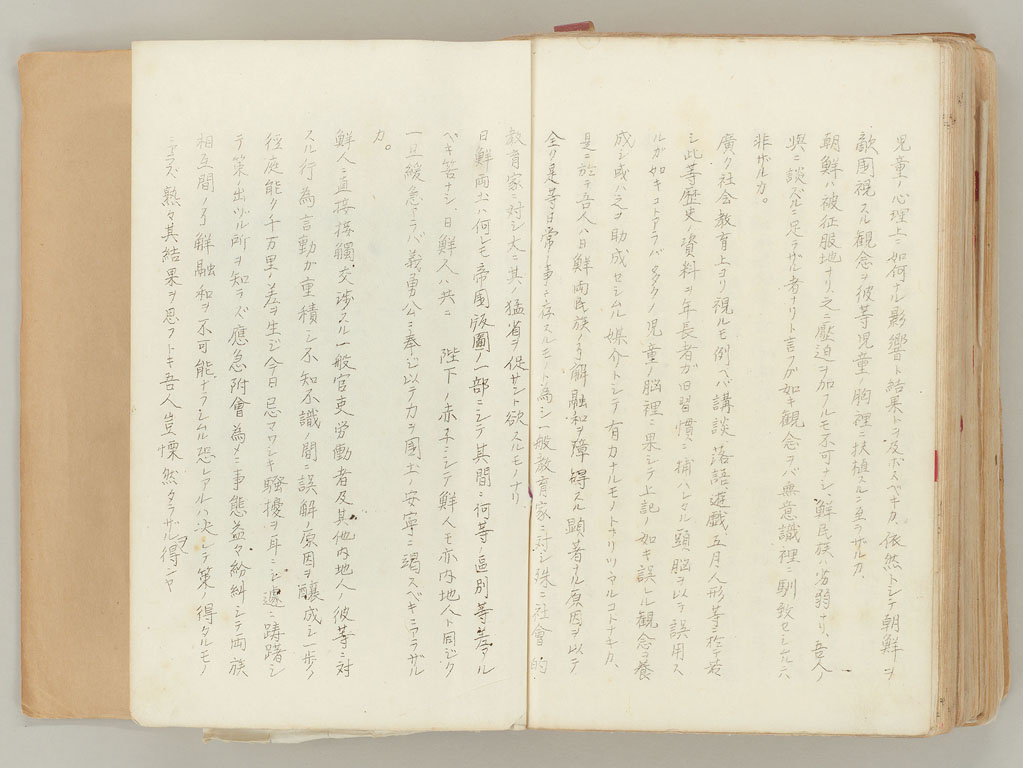 児童ノ心理上ニ如何ナル影響ト結果トヲ及ボスベキカ、依然トシテ朝鮮ヲ
敵国視スル観念ヲ彼等児童ノ胸裡ニ扶植スルニ至ラザルカ、
朝鮮ハ被征服地ナリ之ニ圧迫ヲ加フルモ不可ナシ、鮮民族ハ劣弱ナリ、吾人ノ
与ニ談ズルニ足ラザル者ナリト言フガ如キ観念ヲバ無意識裡ニ馴致セシムルニ
非ザルカ。
広ク社会教育上ヨリ視ルモ例ヘバ講談、落語、遊戯、五月人形等ニ於テ若
シ此等歴史ノ資料ヲ年長者ガ旧習慣ニ捕ハレタル頭脳ヲ以テ誤用ス
ルガ如キコトアラバ多クノ児童ノ脳裡ニ果シテ上記ノ如キ誤レル観念ヲ養
成シ或ハ之ヲ助成セシムル媒介トシテ有力ナルモノトナリツヽアルコトナキカ、
是ニ於テ吾人ハ日鮮両民族ノ了解融和ヲ障碍スル顕著ナル原因ヲ以テ
全ク是等日常ノ事ニ存スルモノト為シ一般教育家ニ対シ殊ニ社会的
教育家ニ対シ大ニ其ノ猛省ヲ促サント欲スルモノナリ、
日鮮両土ハ何レモ帝国版図ノ一部ニシテ其間ニ何等ノ区別等差アル
ベキ筈ナシ、日鮮人ハ共ニ 陛下ノ赤子ニシテ鮮人モ亦内地人ト同ジク
一旦緩急アラバ義勇公ニ奉ジ以テ力ヲ国土ノ安寧ニ竭スベキニアラザル
カ。
鮮人ニ直接接触交渉スル一般官吏労働者及其他内地人ノ彼等ニ対
スル行為言動ガ重積シ不知不識ノ間ニ誤解ノ原因ヲ醸成シ一歩ノ
径庭能ク千万里ノ差ヲ生ジ今日忌マワシキ騒擾ヲ耳ニシ遽ニ躊躇シ
テ策ノ出ヅル所ヲ知ラズ応急附会為メニ事態益々紛糾シテ両族
相互間ノ了解融和ヲ不可能ナラシムル恐レアルハ決シテ策ノ得タルモノ
ニアラズ熟々其結果ヲ思フトキ吾人豈慄然タラザルヲ得ンヤ